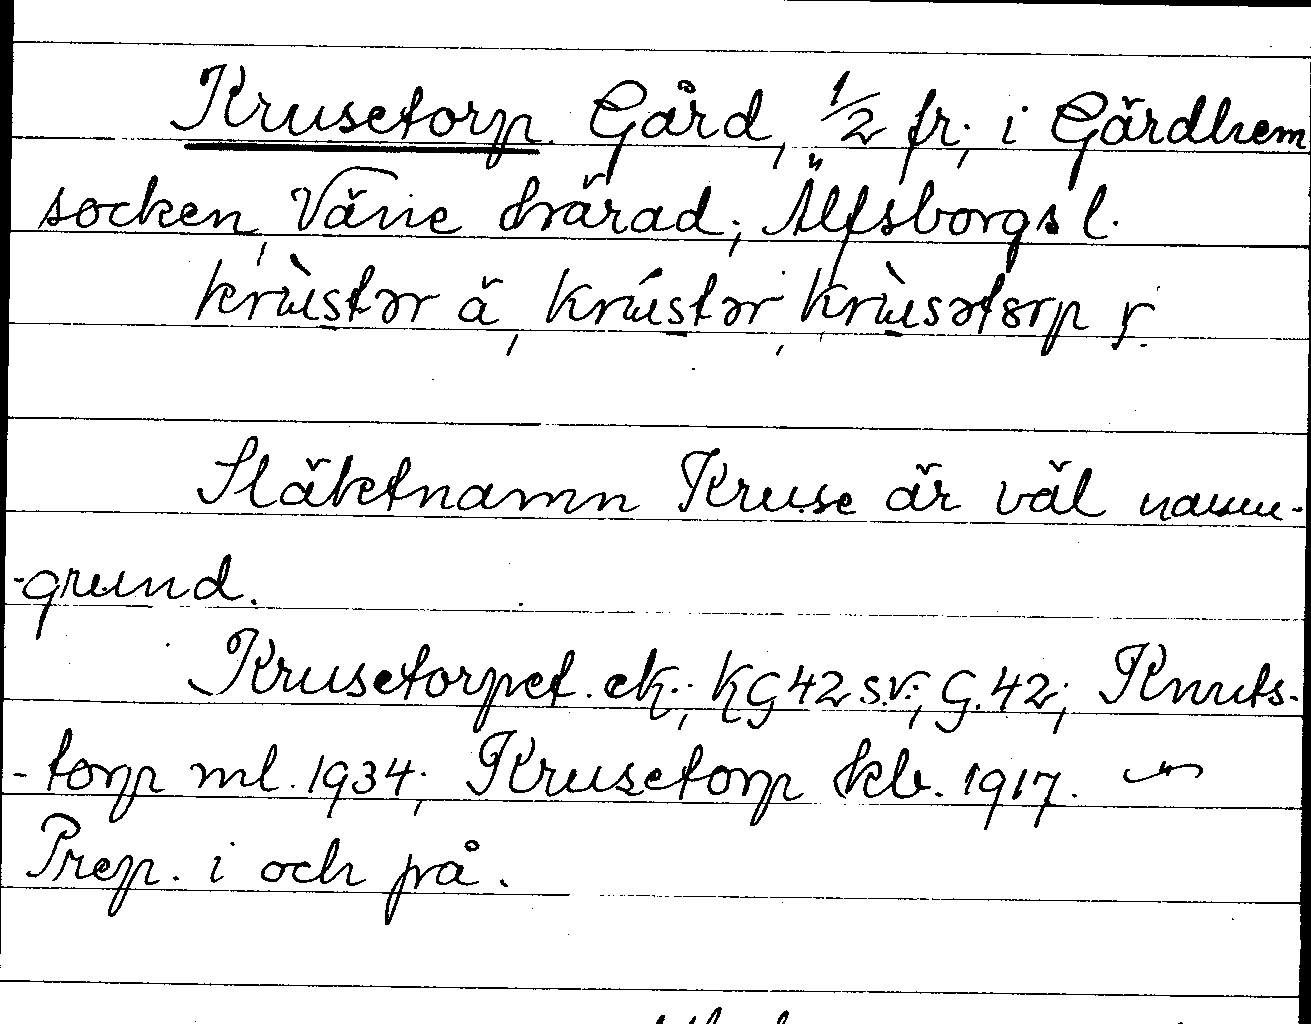 Krusetorp. Gård, 1/2 fr., i Gärdhem
socken, Väne härad, Älfsborgs l.
krùstər ä, krústər, krùsətorp y.
Släktnamn Kruse är väl namn-
-grund.
Krusetorpet. ek.; KG 42 s.v.; G. 42; Knuts-
-torp ml. 1934; Krusetorp kb. 1917. —
Prep. i och på.